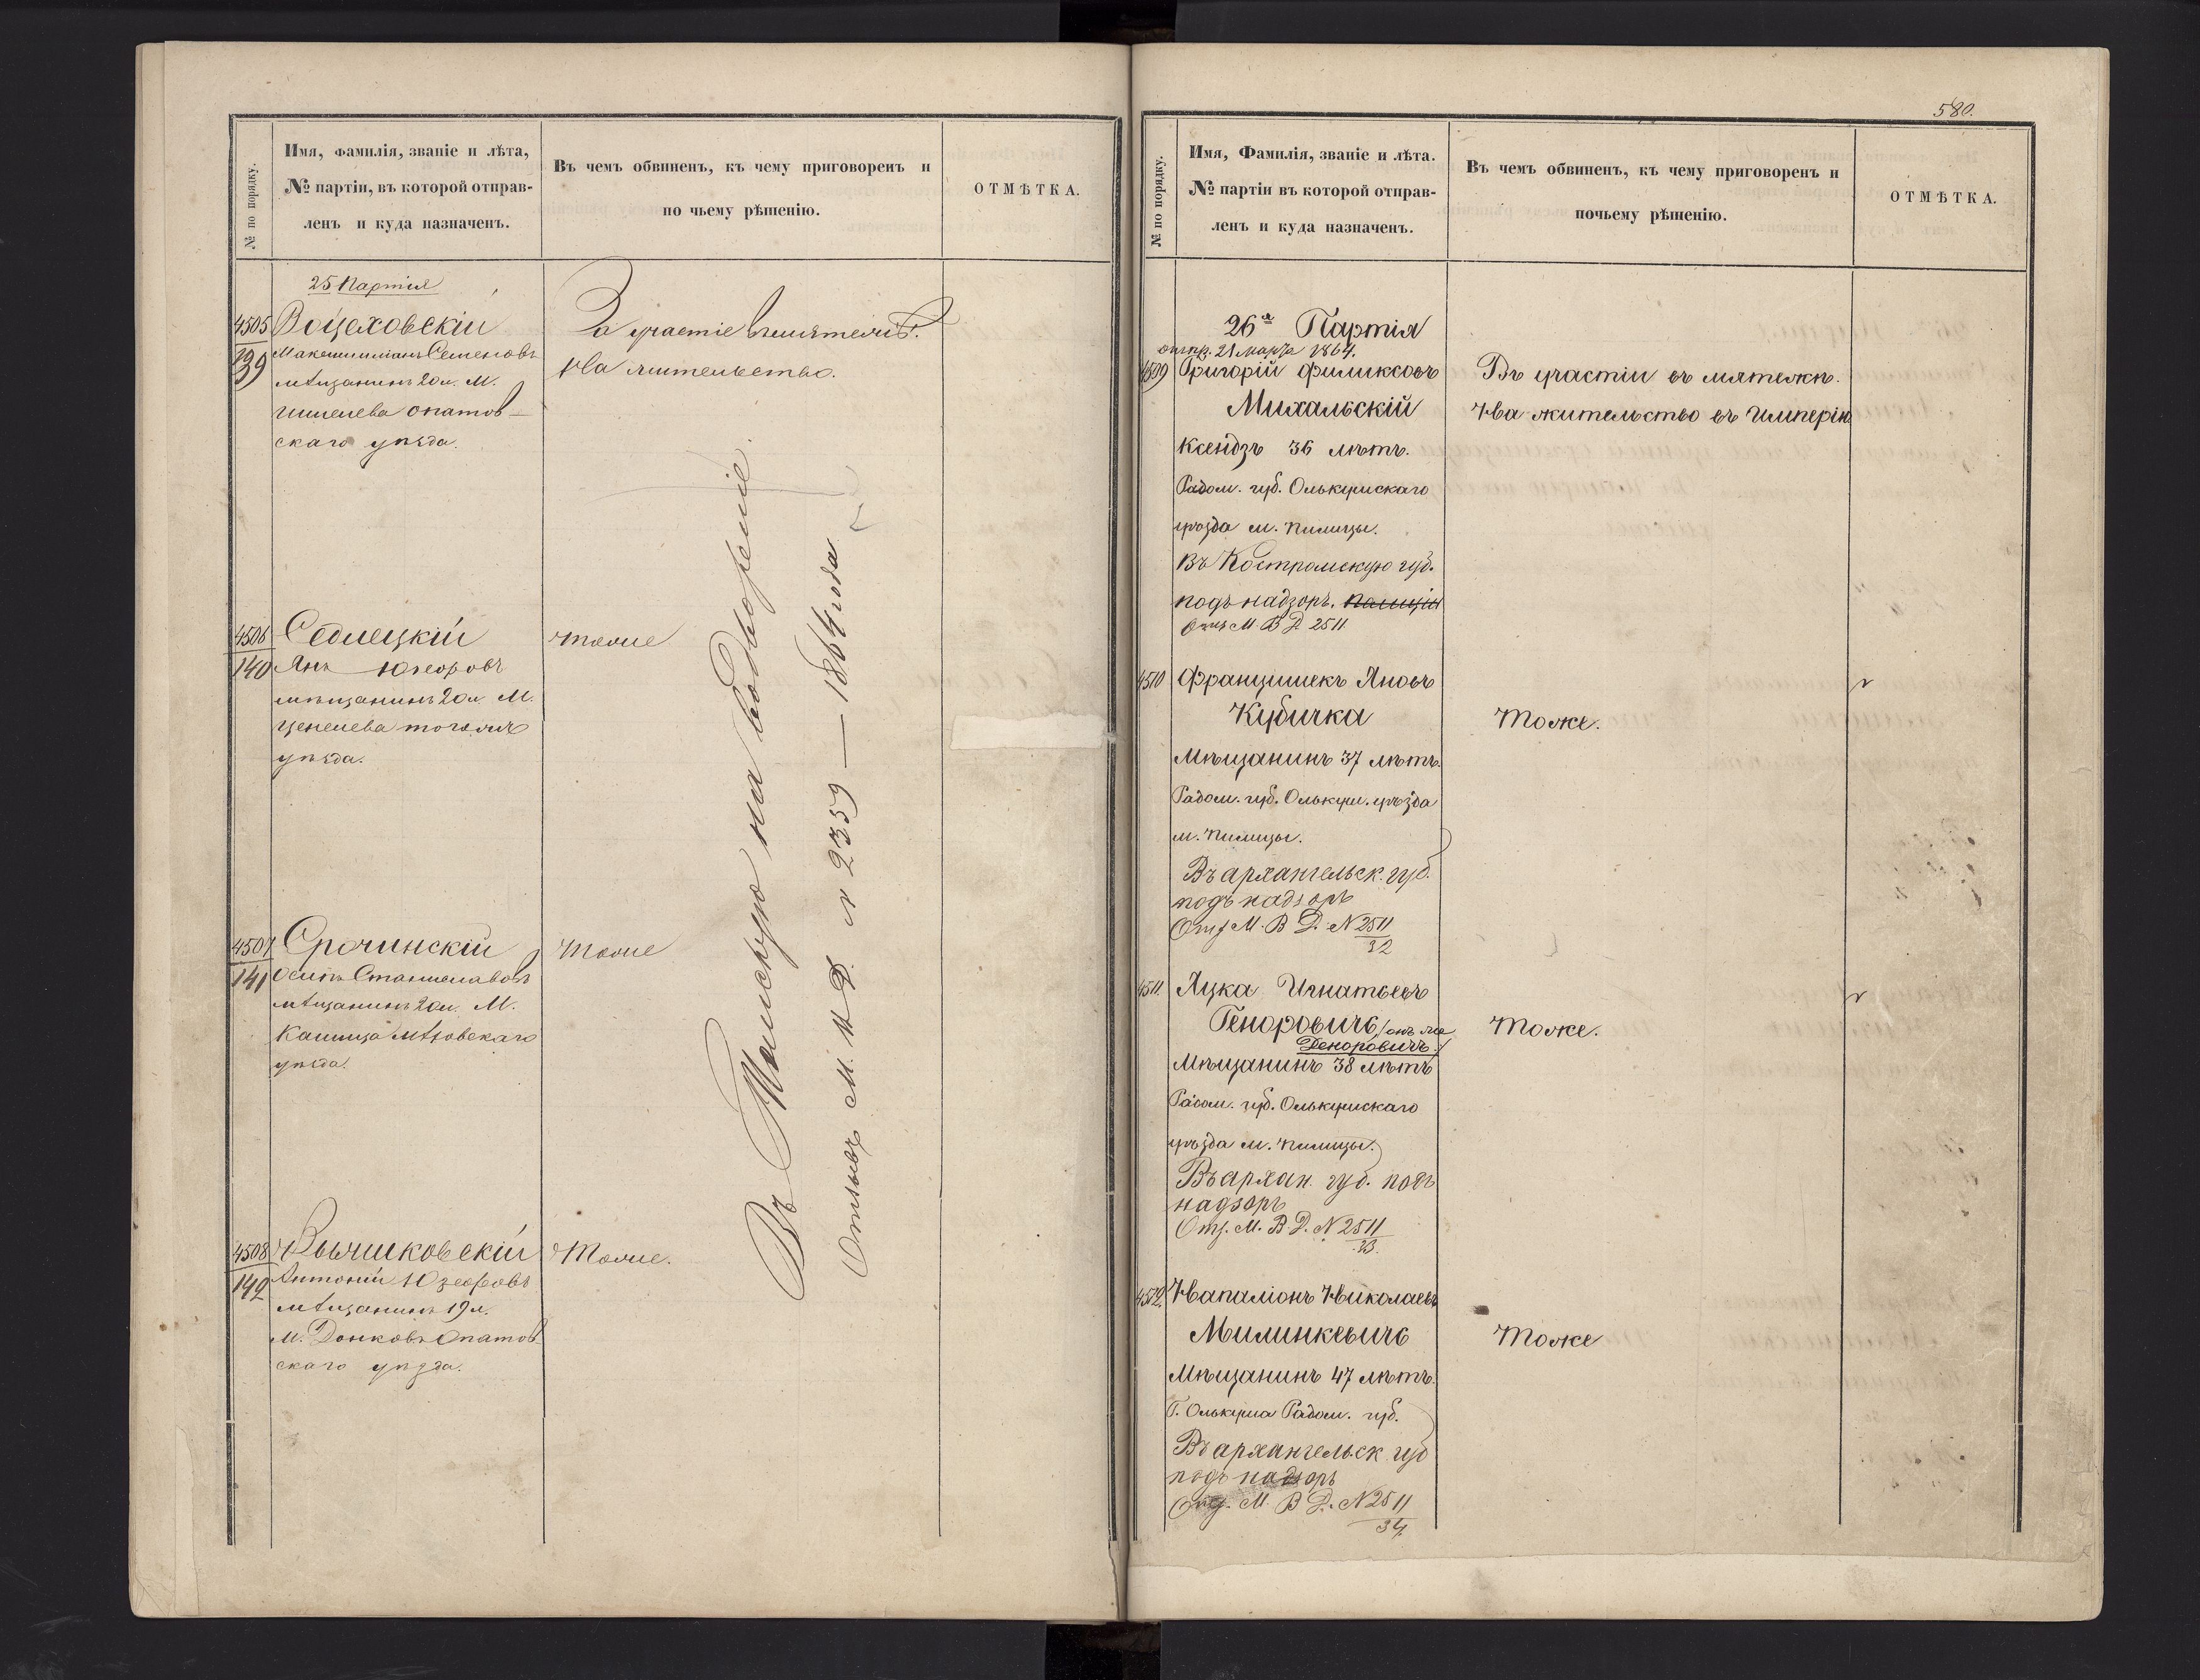 № по порядку.
Имя, фамилія, званіе и лѣта,
№ партіи, въ которой отправ-
ленъ и куда назначенъ.
Въ чемъ обвиненъ, къ чему приговоренъ и
по чьему рѣшенію.
ОТМѢТКА.
25 Партія
4505
139
Воцеховскій
Максимиліанъ Семеновъ
мѣщанинъ 20 л. М.
опатов-
скаго уѣзда.
За участіе въ мятежѣ.
На жительство.
4506
140
Седлецкій
Янъ Юзефовъ
мѣщанинъ 20 л. М.
тогоже
уѣзда.
тоже
4507
141
Срочинскій
Осипъ Станиславовъ
мѣщанинъ 20 л. М.
уѣзда.
тоже
4508
142
Антоній Юзефовъ
мѣщанинъ 19 л.
М. Донковъ Опатов
скаго уѣзда.
Тоже.
Въ Томскую на водвореніе
Отзывъ М. В. Д. № 2359 — 1864 года
580.
№ по порядку.
Имя, Фамилія, званіе и лѣта.
№ партіи въ которой отправ-
ленъ и куда назначенъ.
Въ чемъ обвиненъ, къ чему приговоренъ и
почьему рѣшенію.
ОТМѢТКА.
26я Партія
отпр. 21 марта 1864.
4509
Григорій Филиксовъ
Михальскій
Ксендзъ 36 лѣтъ.
Радом. губ. Олькушскаго
уѣзда м. Пилицы.
Въ Костромскую губ.
подъ надзоръ. полиціи
Отз. М. В Д 2511
Въ участіи въ мятежѣ.
На жительство въ Имперію
4510
Францишекъ Яновъ
Кубичка
Мѣщанинъ 37 лѣтъ.
Радом. губ. Олькуш. уѣзда
м. Пилицы.
Въ архангельск. губ.
подъ надзоръ
Отз М. В Д. N 2511
32
Тоже.
4511.
Яцка Игнатьевъ
Геноровичъ /онъ же
Деноровичъ/
Мѣщанинъ 38 лѣтъ
Радом. губ. Олькушскаго
уѣзда м. Пилицы.
Въ архан. губ. подъ
надзоръ
Отз. М. В. Д. N 2511
33.
Тоже.
4512.
Напаліонъ Николаевъ
Милинкевичъ
Мѣщанинъ 47 лѣтъ.
Г. Олькуша Радом. губ.
Въ архангельск губ
подъ надзоръ
Отз. М. В Д. N 2511
34.
Тоже